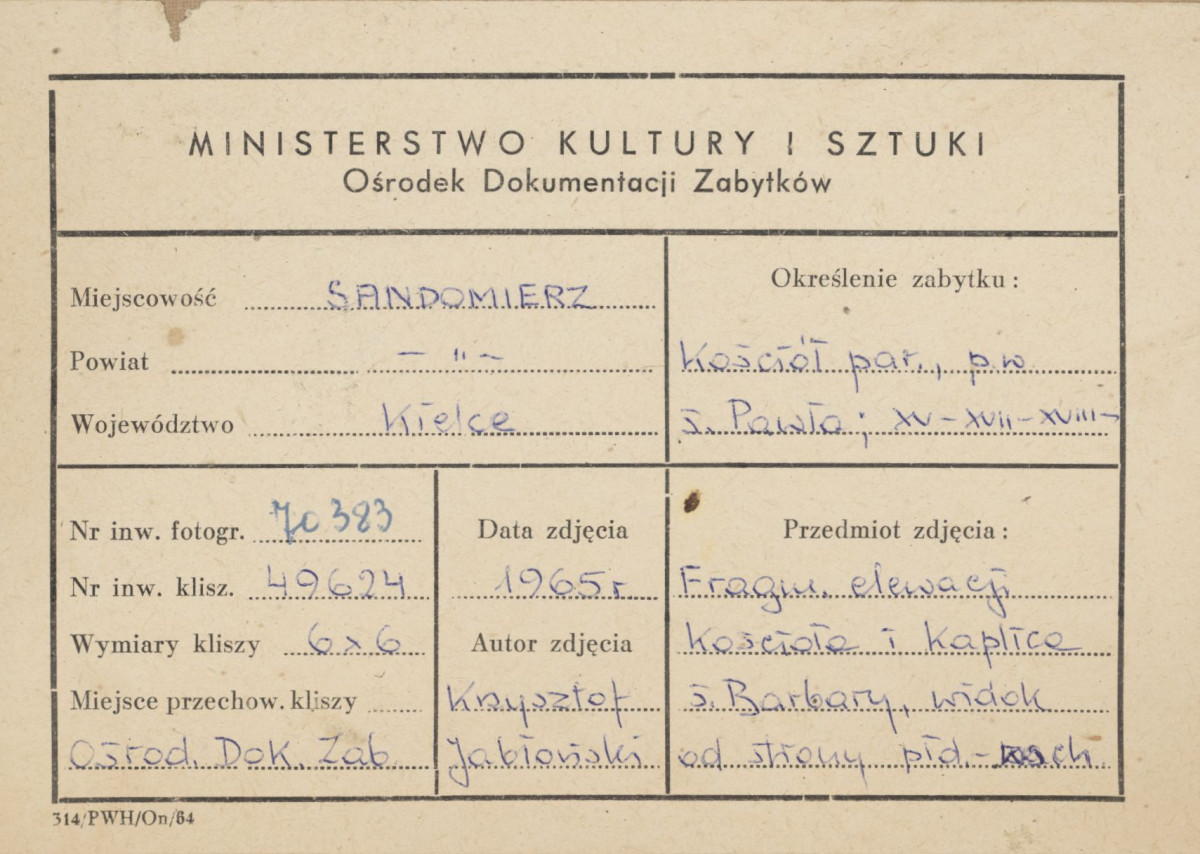 MINISTERSTWO KULTURY I SZTUKI
Ośrodek Dokumentacji Zabytków
Miejscowość SANDOMIERZ
Powiat — " —
Województwo Kielce
Określenie zabytku:
Kościół par., p.w
ś. Pawła; XV-XVII-XVIII
Nr inw. fotogr. 70383
Nr inw. klisz. 49624
Wymiary kliszy 6x6
Miejsce przechow. kliszy
Ośrod. Dok. Zab
Data zdjęcia
1965r.
Autor zdjęcia
Krzysztof
Jabłoński
Przedmiot zdjęcia:
Fragm. elewacji
Kościoła i Kaplica
ś. Barbary, widok
od strony płd.-
314/PWH/On/64